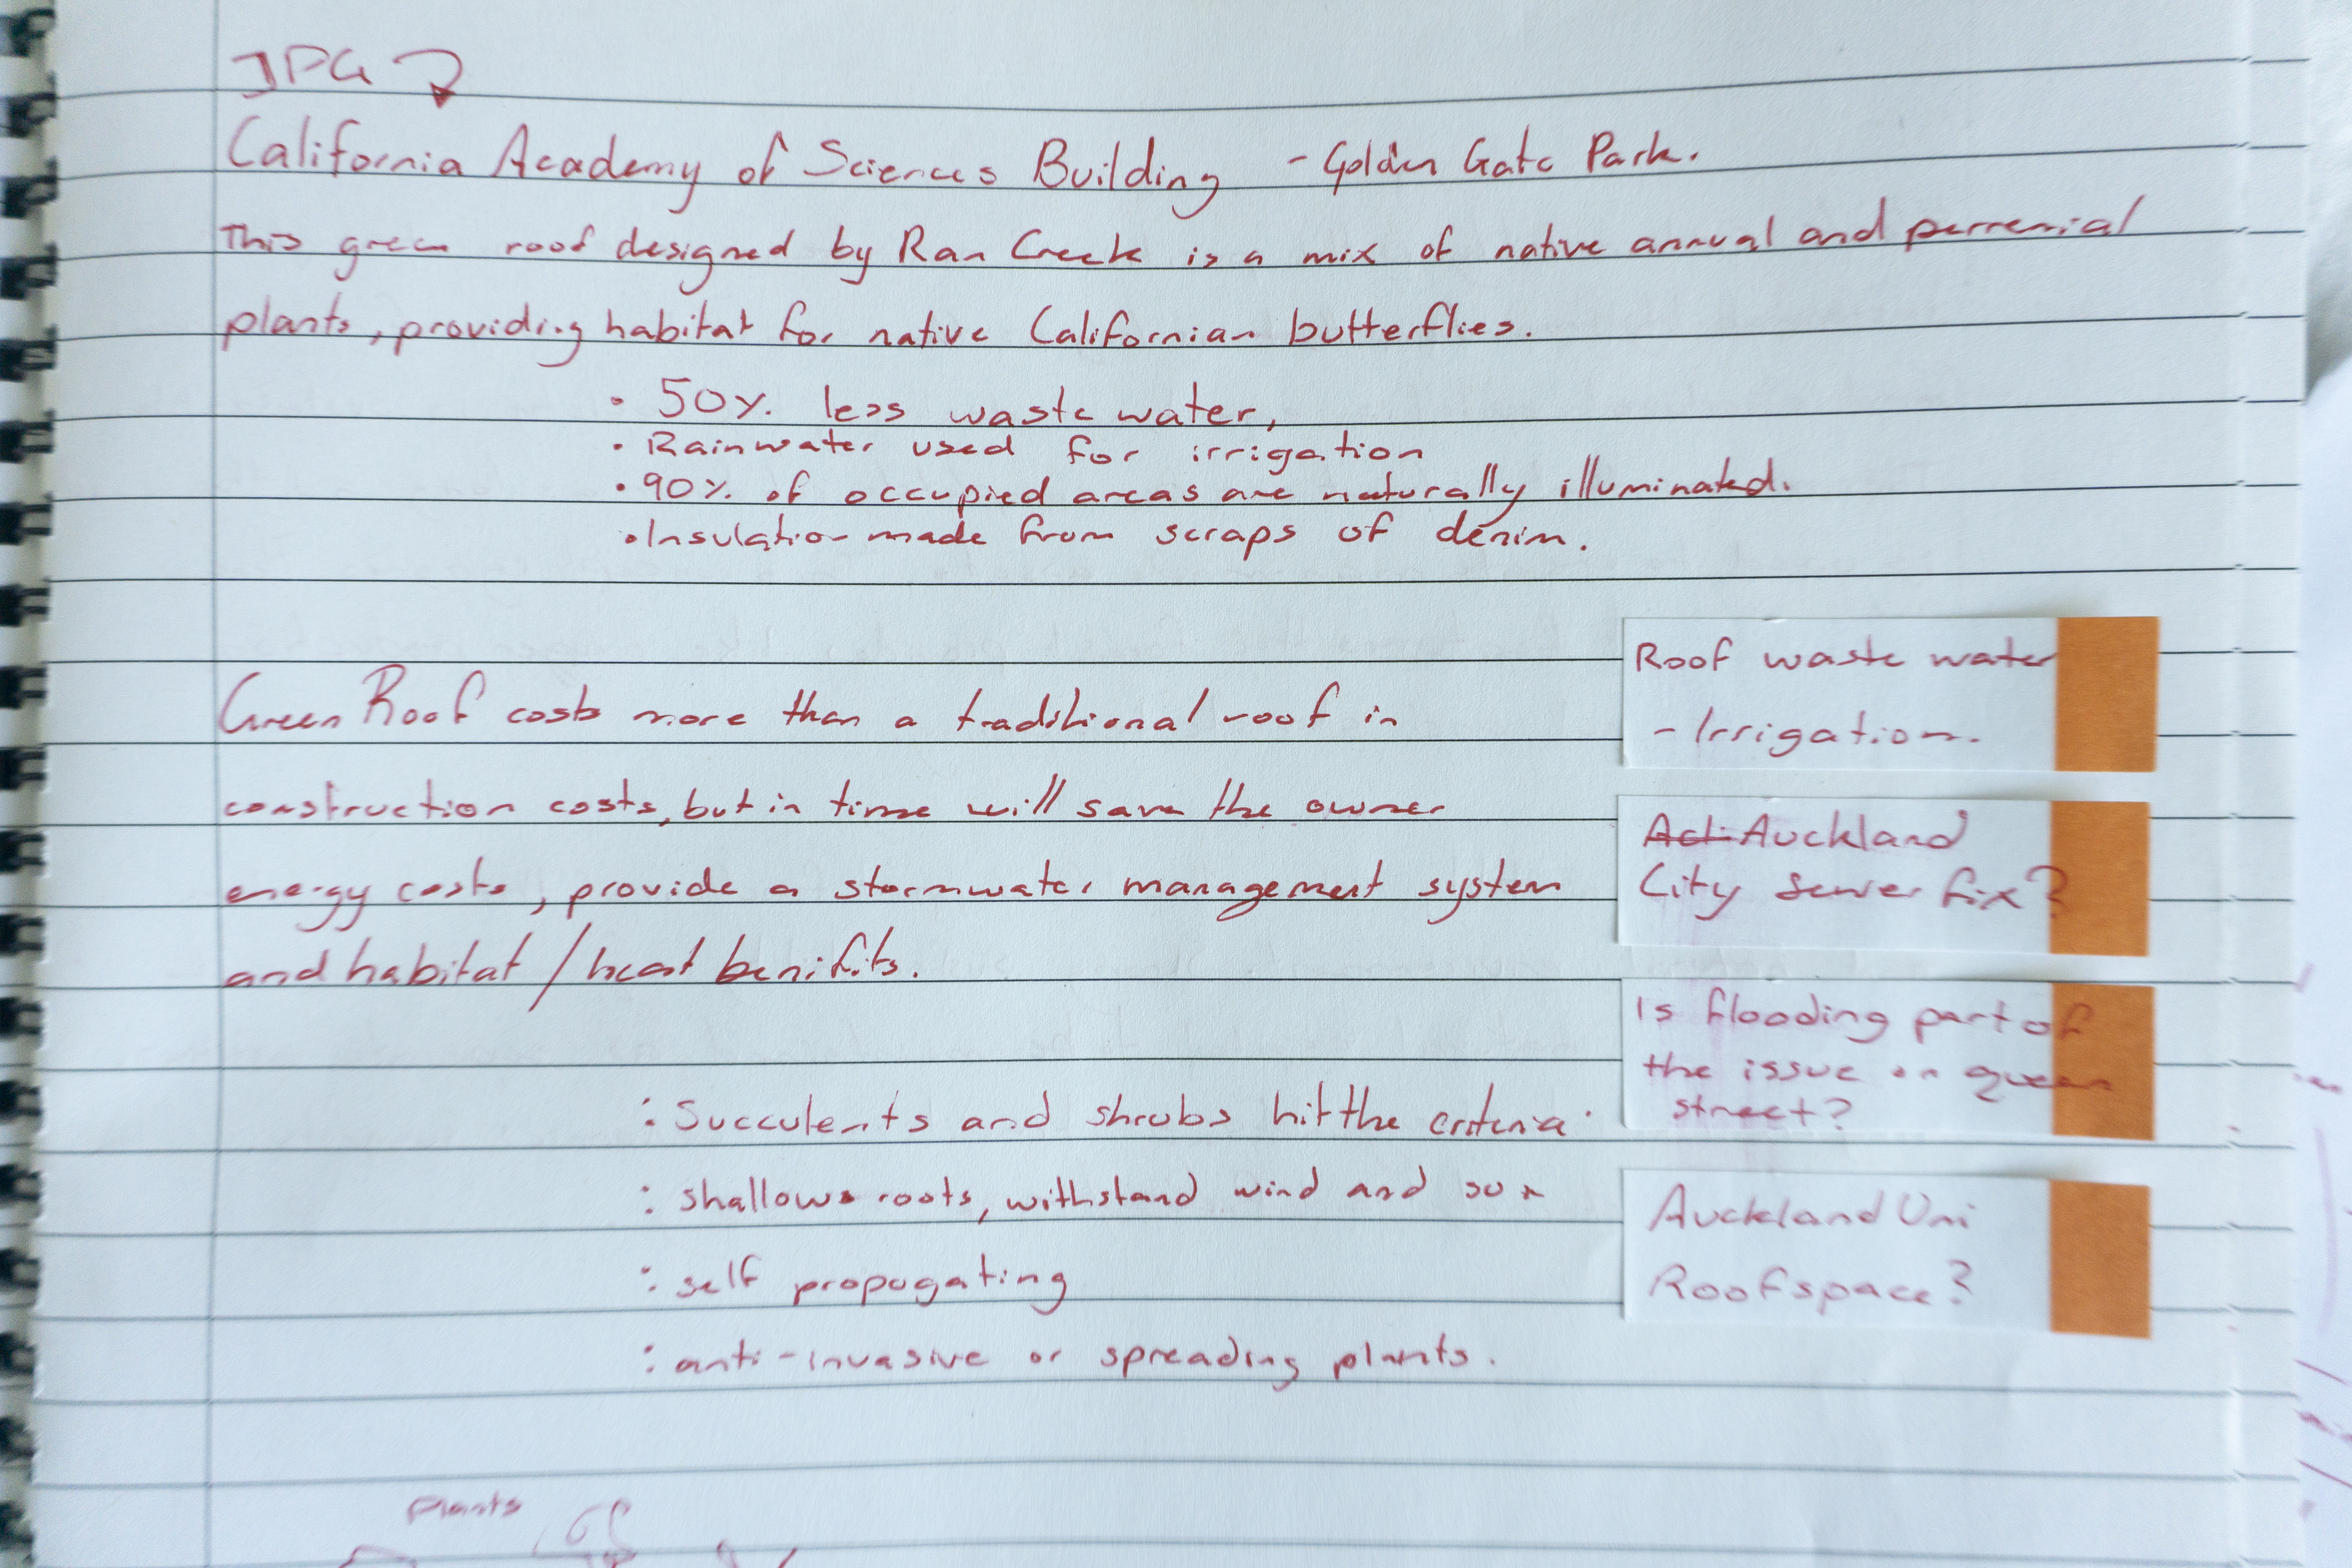 JPG
California Academy of Sciences Building - Golden Gate Park.
This green roof designed by Ran Creek is a mix of native annual and perrenial
plants, providing habitat for native Californian butterflies.
• 50% less waste water,
• Rainwater used for irrigation
• 90% of occupied areas are naturally illuminated.
• Insulation made from scraps of denim.
Green Roof costs more than a traditional roof in
construction costs, but in time will save the owner
energy costs, provide a stormwater management system
and habitat / heat benifits.
: Succulents and shrubs hit the criteria.
: shallows roots, withstand wind and sun
: self propogating
: anti-invasive or spreading plants.
Roof waste water
- Irrigation.
Auckland
City Sewer fix?
Is flooding part of
the issue on queen
street?
Auckland Uni
Roofspace?
Plants